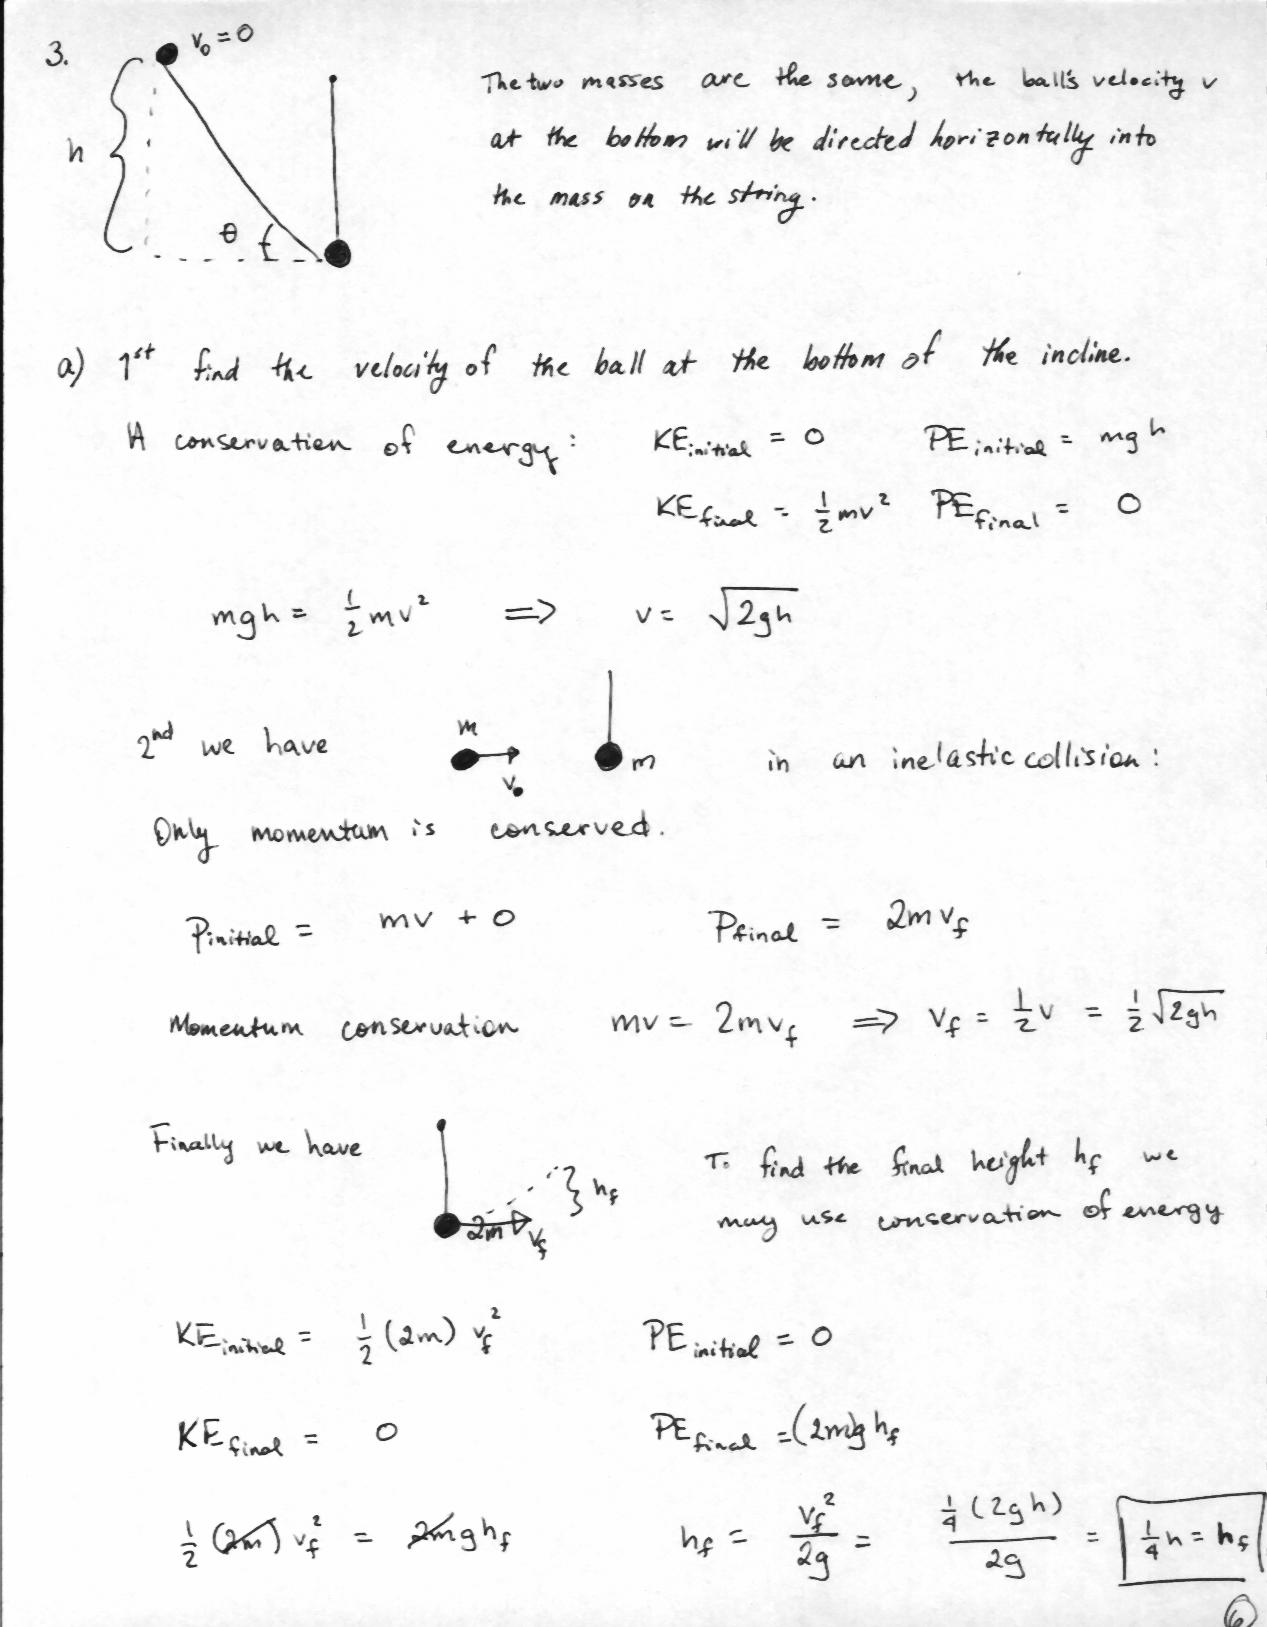 3.
v₀ = 0
h
θ
The two masses are the same, the ball's velocity v
at the bottom will be directed horizontally into
the mass on the string.
a) 1st find the velocity of the ball at the bottom of the incline.
conservation of energy: KE initial = 0 PE initial = mgh
KE final = 1/2 mv² PE final = 0
mgh = 1/2 mv² ⟹ v = √(2gh)
2nd we have m v₀ m in an inelastic collision:
Only momentum is conserved.
P initial = mv + 0 P final = 2mv_f
Momentum conservation mv = 2mv_f ⟹ v_f = 1/2 v = 1/2 √(2gh)
Finally we have 2m v_f h_f To find the final height h_f we
may use conservation of energy
KE initial = 1/2 (2m) v_f² PE initial = 0
KE final = 0 PE final = (2m)g h_f
1/2 (2m) v_f² = 2mgh_f h_f = v_f²/2g = 1/4 (2gh)/2g = 1/4 h = h_f
6